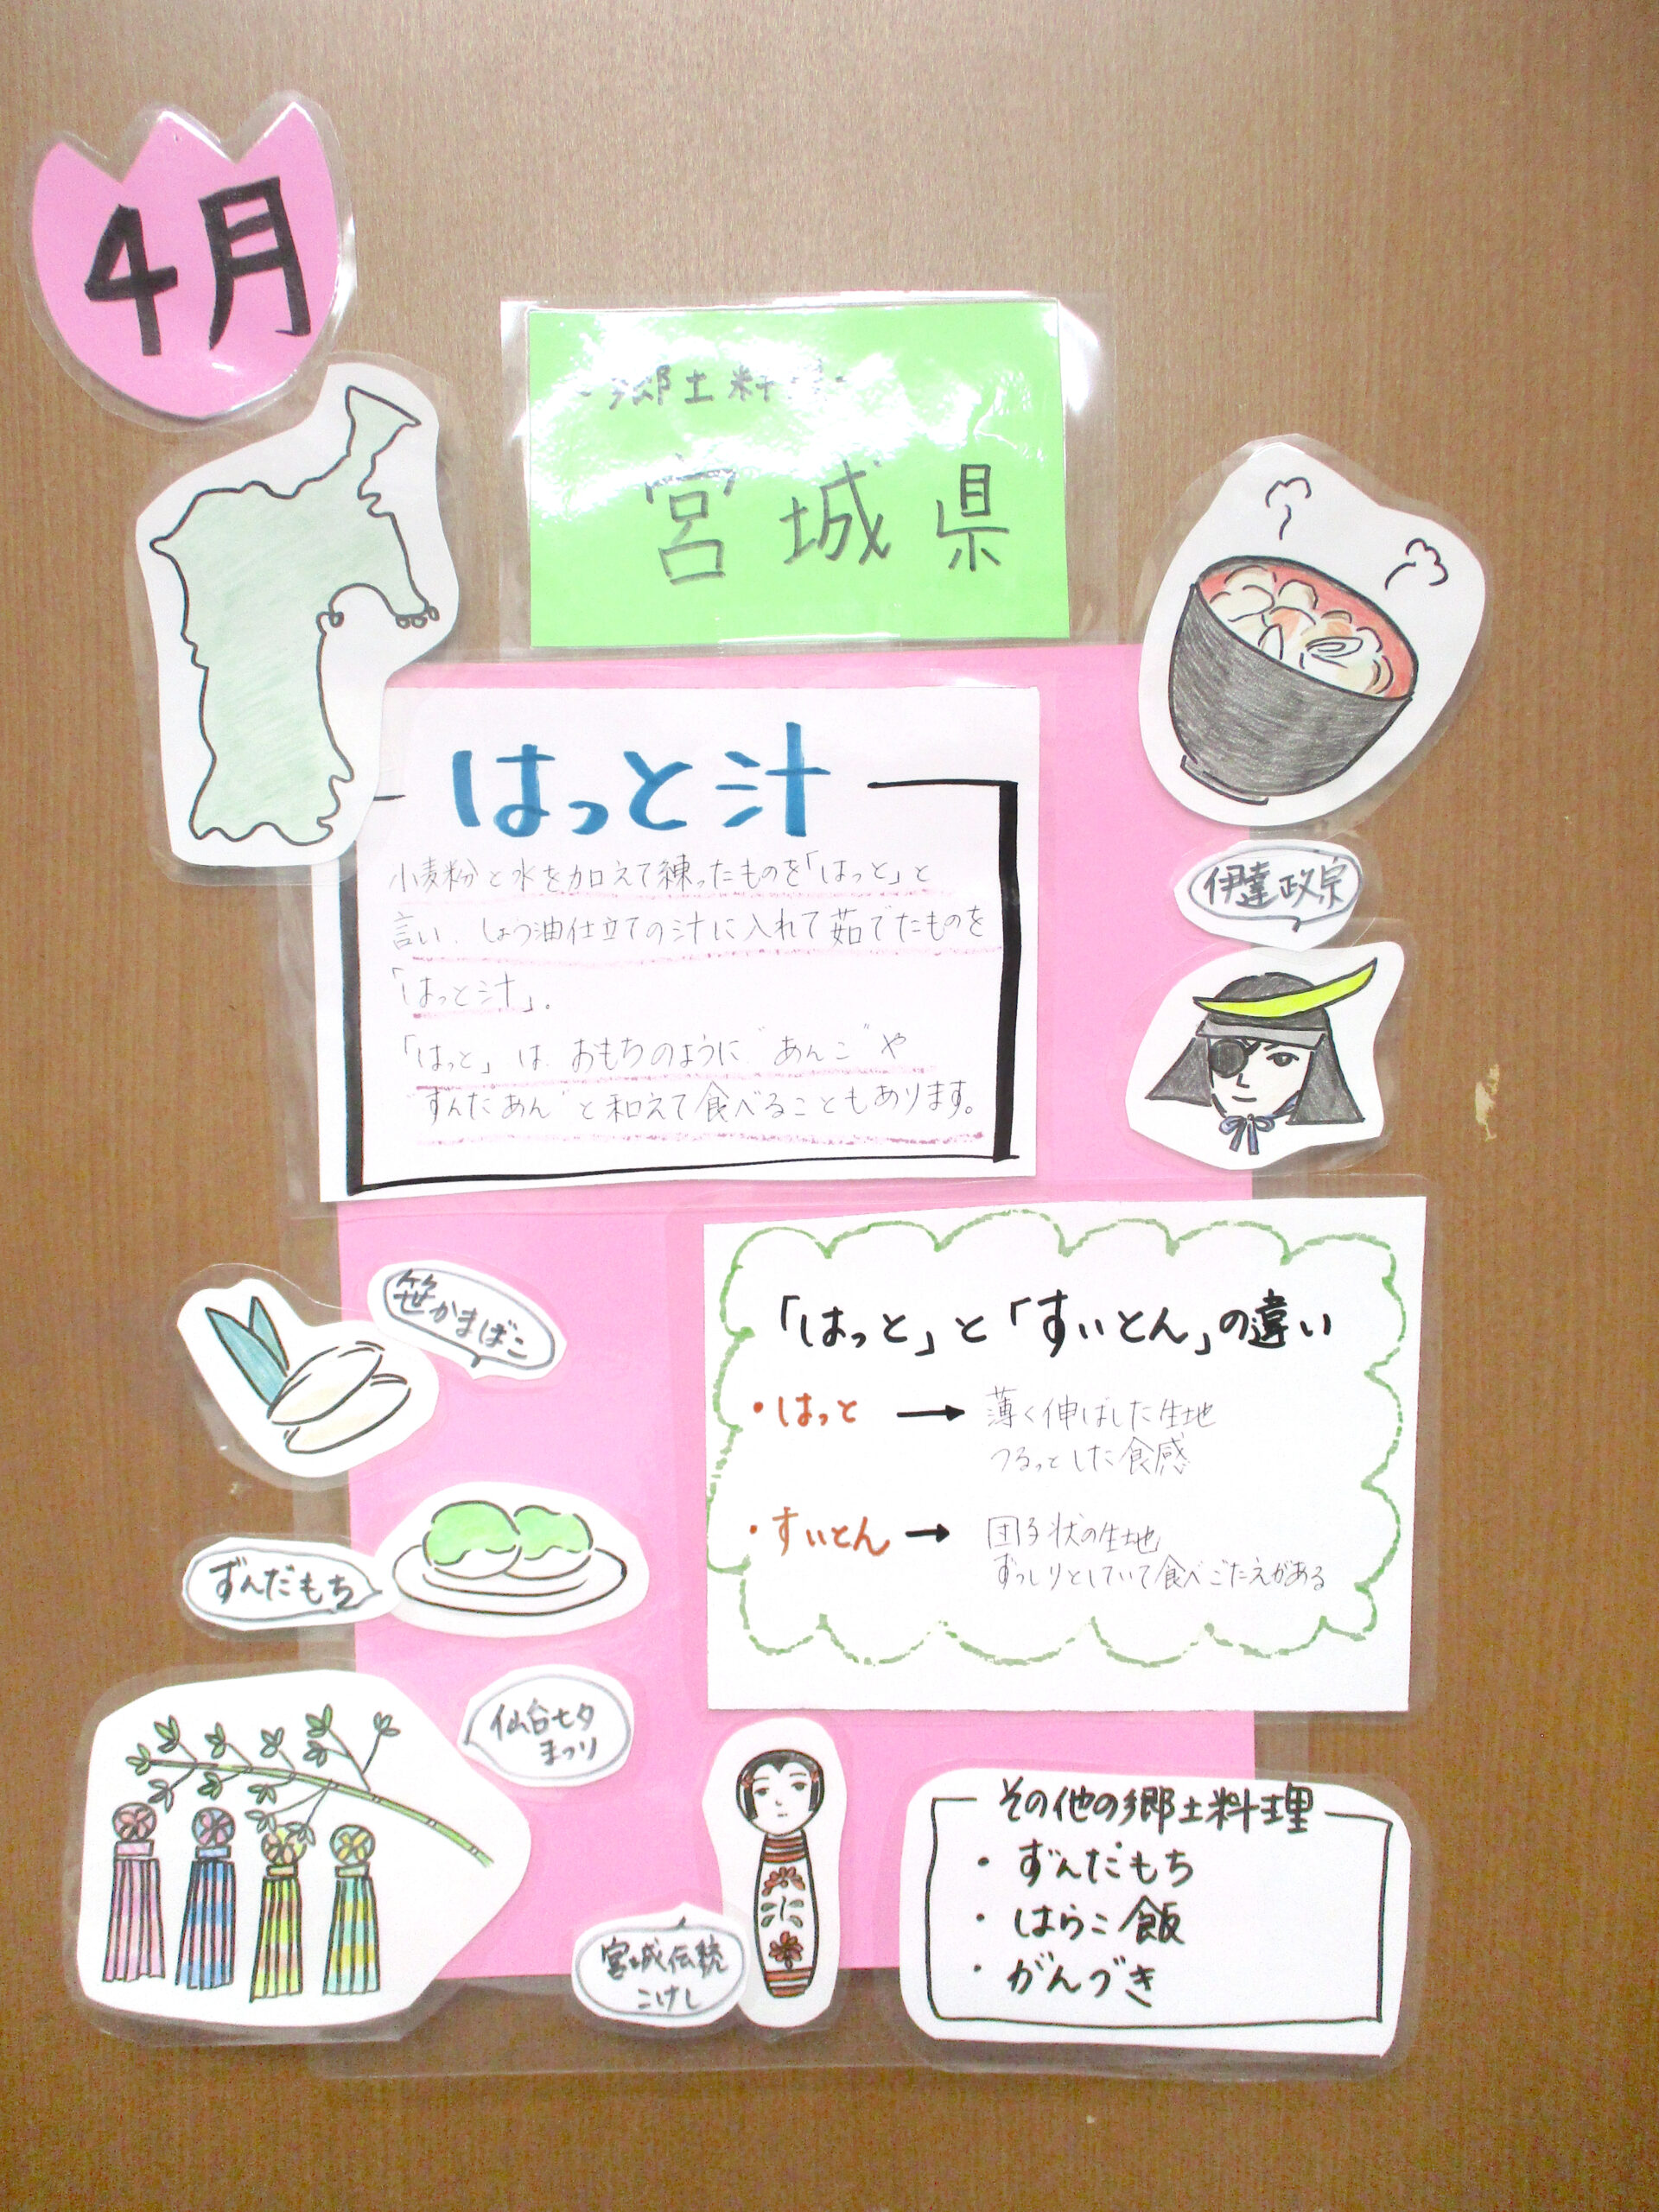 4月
-郷土料理-
宮城県
はっと汁
小麦粉と水を加えて練ったものを「はっと」と
言い、しょう油仕立ての汁に入れて茹でたものを
「はっと汁」。
「はっと」は、おもちのように"あんこ"や
"ずんだあん"と和えて食べることもあります。
伊達政宗
「はっと」と「すいとん」の違い
・はっと → 薄く伸ばした生地
つるっとした食感
・すいとん → 団子状の生地
ずっしりとしていて食べごたえがある
笹かまぼこ
ずんだもち
仙台七夕
まつり
宮城伝統
こけし
その他の郷土料理
・ずんだもち
・はらこ飯
・がんづき